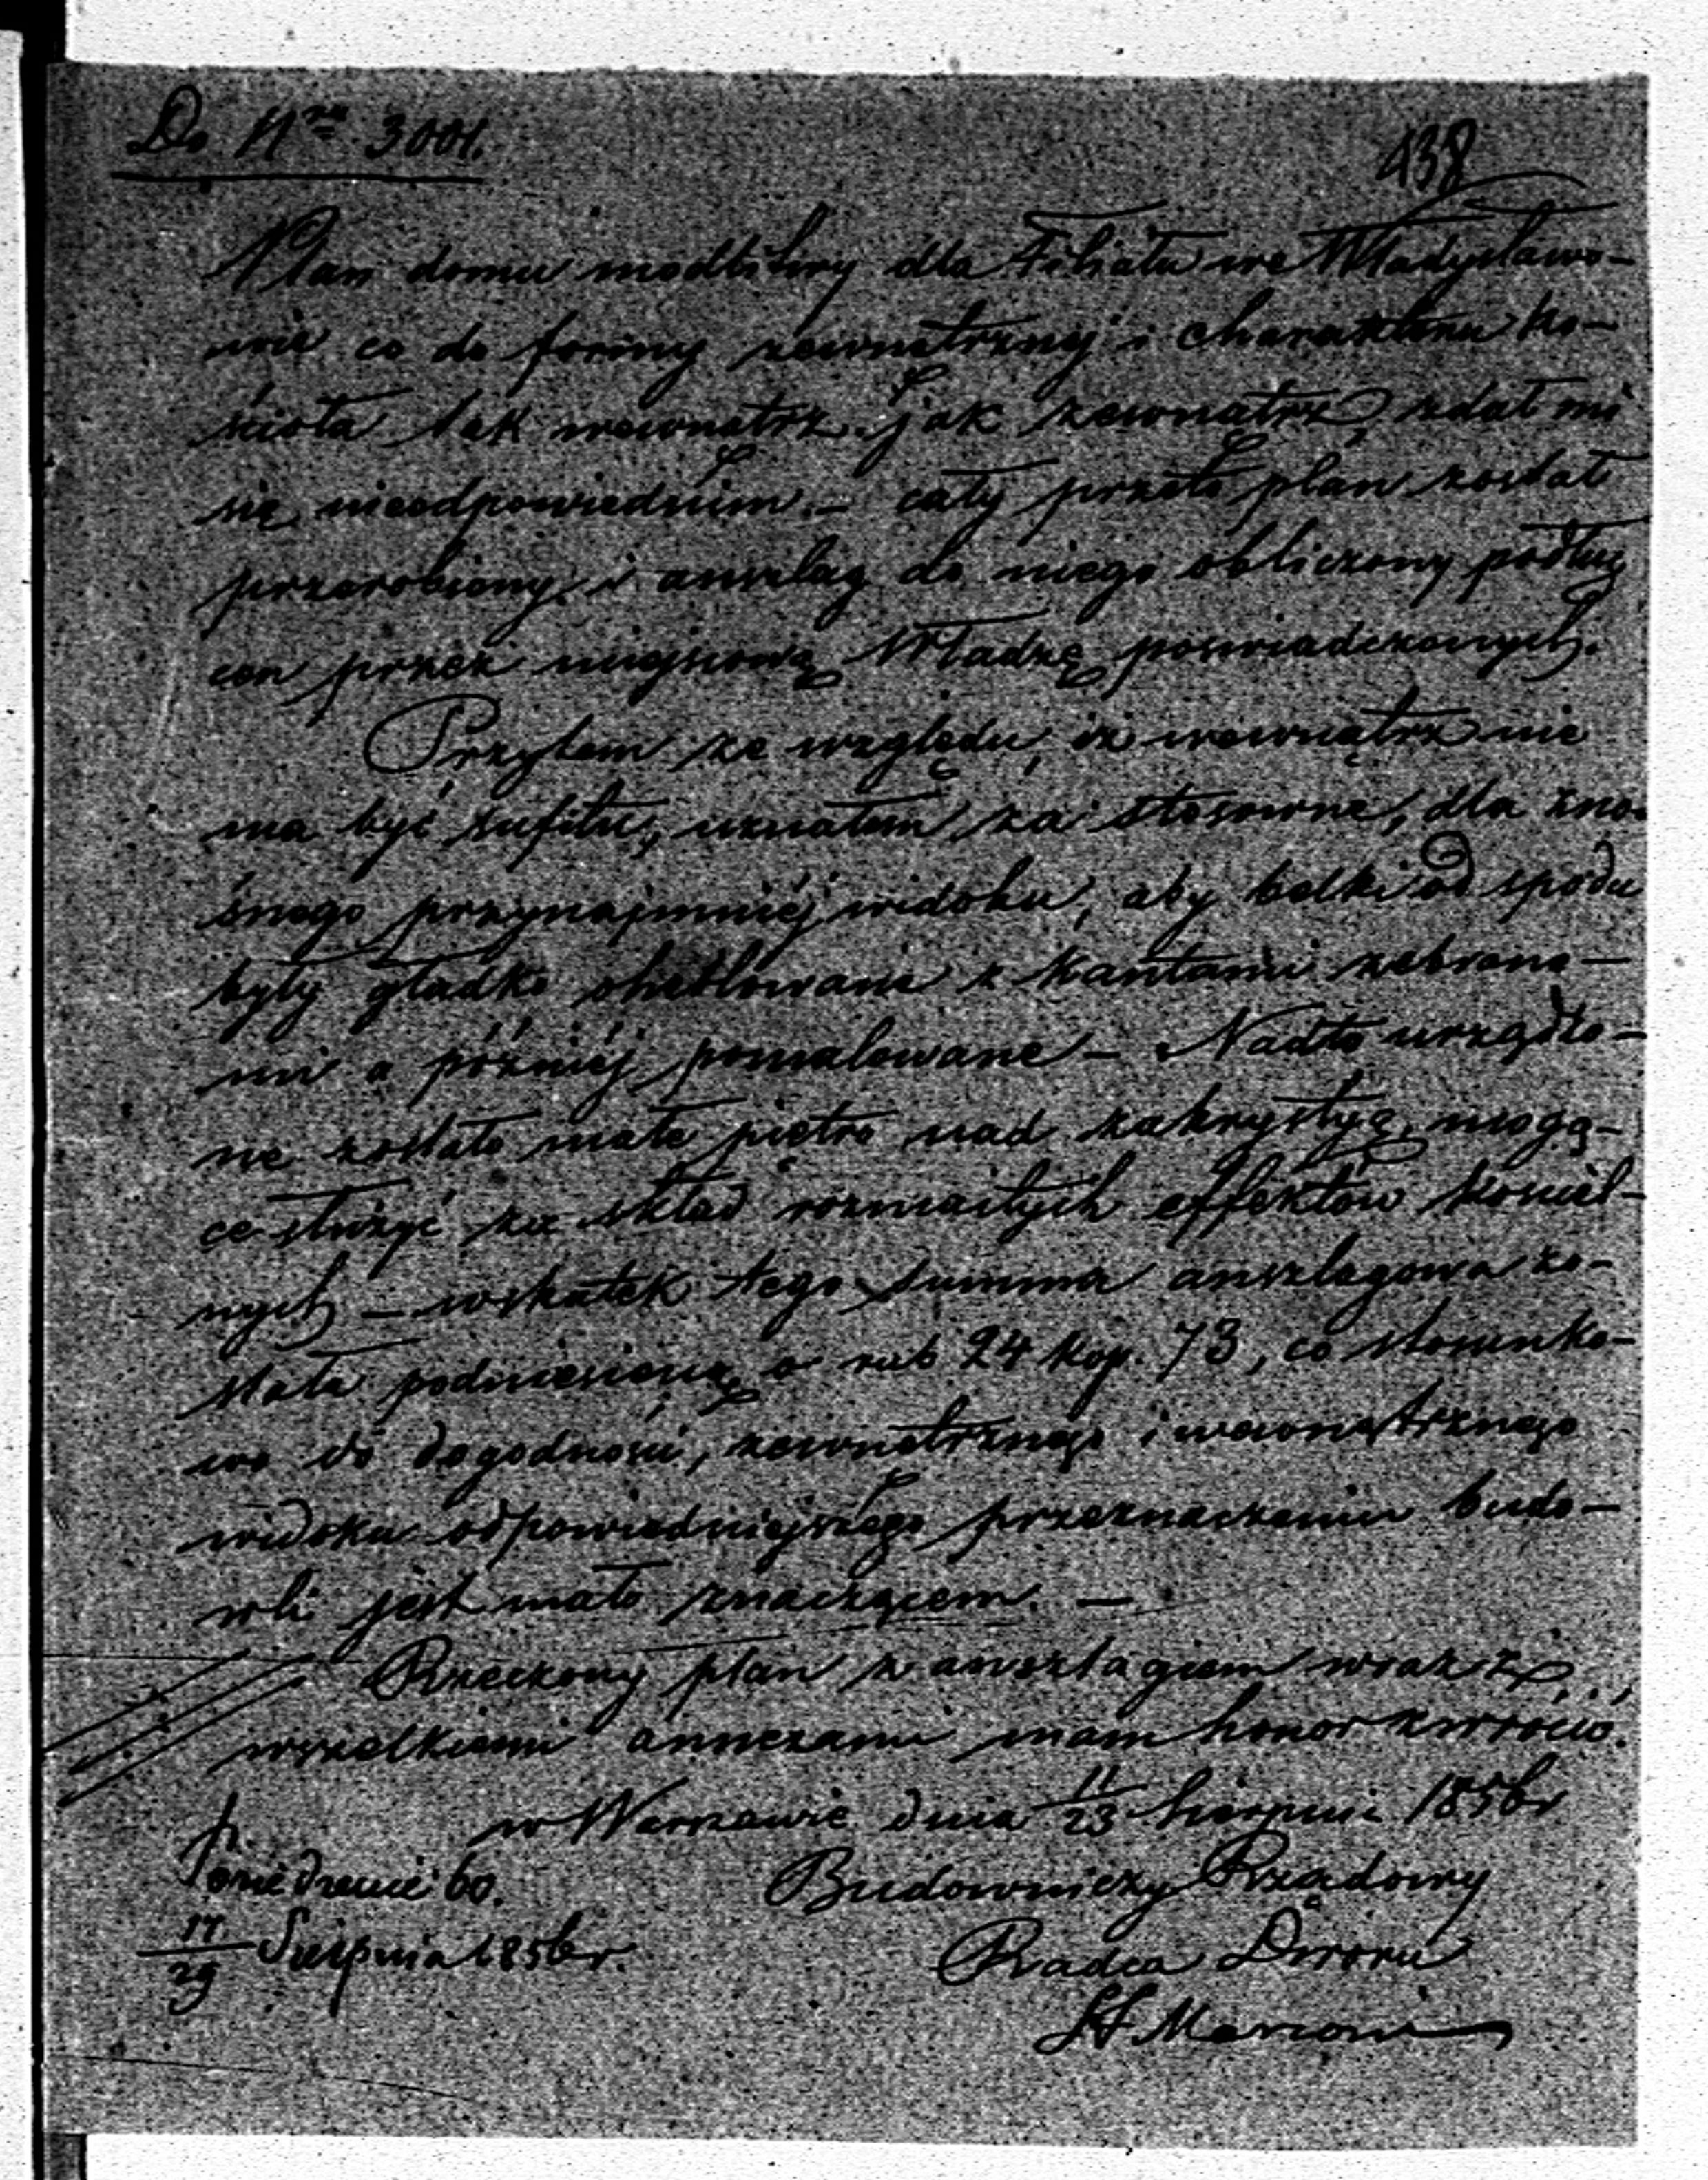 Do Nru 3001.
438
Plan domu modlitwy dla Filiału we Władysławo-
wie co do formy zewnętrznej i charakteru ko-
ścioła tak wewnątrz jak zewnątrz, zdał mi
się nieodpowiednim. – cały przeto plan został
przerobiony i anszlag do niego obliczony podług
cen przez miejscową Władzę poświadczonych.
Przytem ze względu, iż wewnątrz nie
ma być sufitu, uznałem za stosowne, dla zno-
śnego przynajmniéj widoku, aby belki od spodu
były gładko oheblowane z kantami zebrane-
mi a późniéj pomalowane – Nadto urządzo-
ne zostało małe piętro nad zakrystyą, mogą-
ce służyć za skład rozmaitych effektów kościel-
nych – wskutek tego summa anszlagowa zo-
stała podniesioną o rub 24 kop. 73, co stosunko-
wo do dogodności, zewnętrznego i wewnętrznego
widoku odpowiedniejszego przeznaczeniu budo-
wli jest mało znaczącem. –
Rzeczony plan z anszlagiem wraz z
wszelkiemi annexami mam honor zwrócić.
w Warszawie dnia 11/23 Sierpnia 1856 r
Budowniczy Rządowy
Radca Dworu
Marconi
p.
60.
17/29 Sierpnia 1856 r.